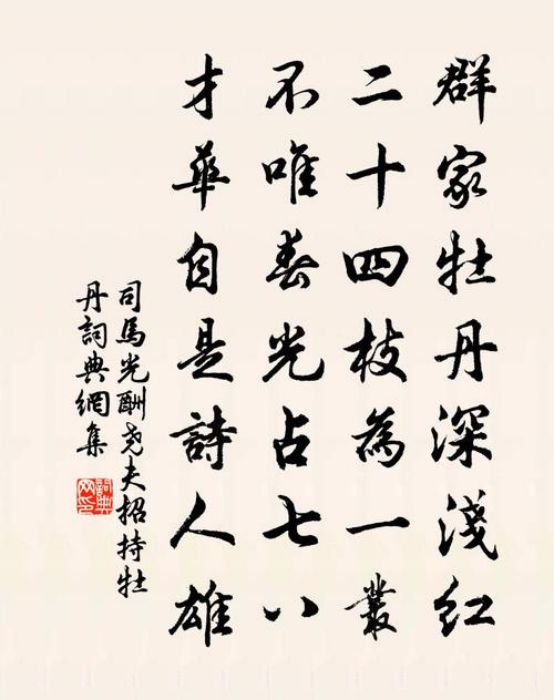 群家牡丹深淺紅
二十四枝為一叢
不唯春光占七八
才華自是詩人雄
司馬光酬堯夫招持牡
丹詞典網集
詞典
网印